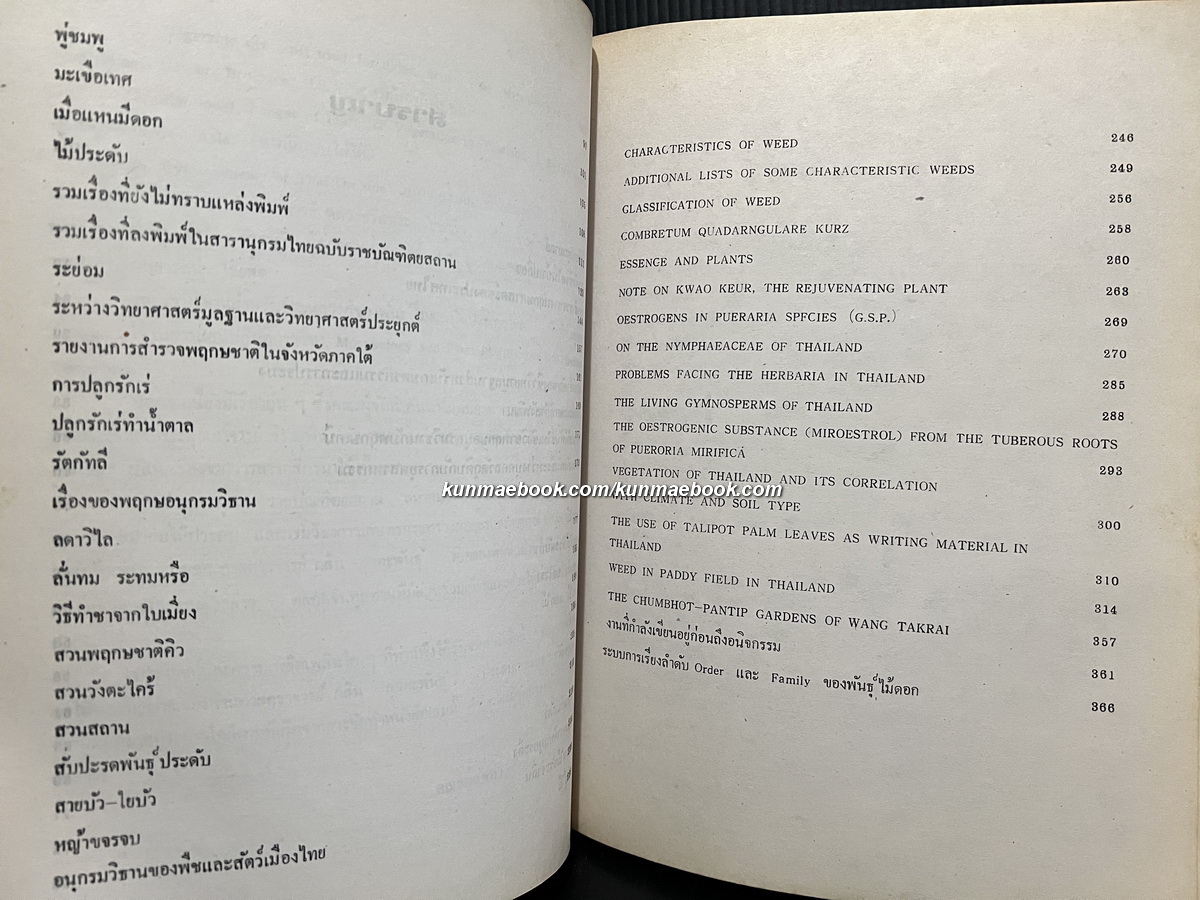 พู่ชมพู
มะเขือเทศ
เมื่อแหนมีดอก
ไม้ประดับ
รวมเรื่องที่ยังไม่ทราบแหล่งพิมพ์
รวมเรื่องที่ลงพิมพ์ในสารานุกรมไทยฉบับราชบัณฑิตยสถาน
ระย่อม
ระหว่างวิทยาศาสตร์มูลฐานและวิทยาศาสตร์ประยุกต์
รายงานการสำรวจพฤกษชาติในจังหวัดภาคใต้
การปลูกรักเร่
ปลูกรักเร่ทำน้ำตาล
รัตกัทลี
เรื่องของพฤกษอนุกรมวิธาน
ลดาวิไล
ลั่นทม ระทมหรือ
วิธีทำชาจากใบเมี่ยง
สวนพฤกษชาติคิว
สวนวังตะไคร้
สวนสถาน
สับปะรดพันธุ์ประดับ
สายบัว-ใยบัว
หญ้าขจรจบ
อนุกรมวิธานของพืชและสัตว์เมืองไทย
CHARACTERISTICS OF WEED 246
ADDITIONAL LISTS OF SOME CHARACTERISTIC WEEDS 249
GLASSIFICATION OF WEED 256
COMBRETUM QUADARNGULARE KURZ 258
ESSENCE AND PLANTS 260
NOTE ON KWAO KEUR, THE REJUVENATING PLANT 263
OESTROGENS IN PUERARIA SPFCIES (G.S.P.) 269
ON THE NYMPHAEACEAE OF THAILAND 270
PROBLEMS FACING THE HERBARIA IN THAILAND 285
THE LIVING GYMNOSPERMS OF THAILAND 288
THE OESTROGENIC SUBSTANCE (MIROESTROL) FROM THE TUBEROUS ROOTS
OF PUERORIA MIRIFICA 293
VEGETATION OF THAILAND AND ITS CORRELATION
WITH CLIMATE AND SOIL TYPE 300
THE USE OF TALIPOT PALM LEAVES AS WRITING MATERIAL IN
THAILAND 310
WEED IN PADDY FIELD IN THAILAND 314
THE CHUMBHOT-PANTIP GARDENS OF WANG TAKRAI 357
งานที่กำลังเขียนอยู่ก่อนถึงอนิจกรรม 361
ระบบการเรียงลำดับ Order และ Family ของพันธุ์ไม้ดอก 366
kunmaebook.com/kunmaebook.com